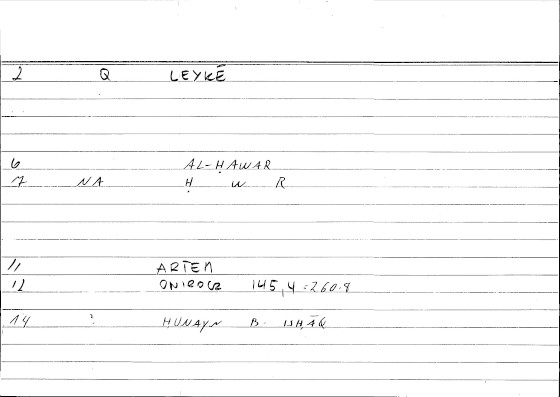 2 Q LEYKĒ
6 AL-ḤAWAR
7 NA Ḥ W R
11 ARTEM
12 ONIROCR 145,4 = 260.8
14 : ḤUNAYN B. ISḤĀQ